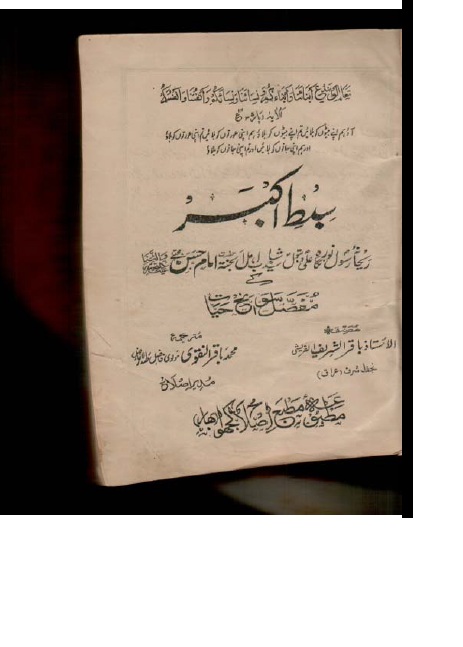 تعالوا ندع ابناءنا وابناءکم ونساءنا ونساءکم وانفسنا وانفسکم
الآیہ
آؤ ہم اپنے بیٹوں کو بلائیں تم اپنے بیٹوں کو بلاؤ ہم اپنی عورتوں کو بلائیں تم اپنی عورتوں کو بلاؤ
اور ہم اپنی جانوں کو بلائیں اور تم اپنی جانوں کو بلاؤ
سبط اکبر
ریحانۂ رسول نور نگاہ علی و بتول سید شباب اہل الجنۃ امام حسن
کے
مفصل سوانح حیات
مصنفہ
الاستاذ باقر الشریف القرشی
نجف اشرف (عراق)
مترجمہ
محمد باقر النقوی
مدیر اصلاح
مطبع اصلاح کھجوا بہار